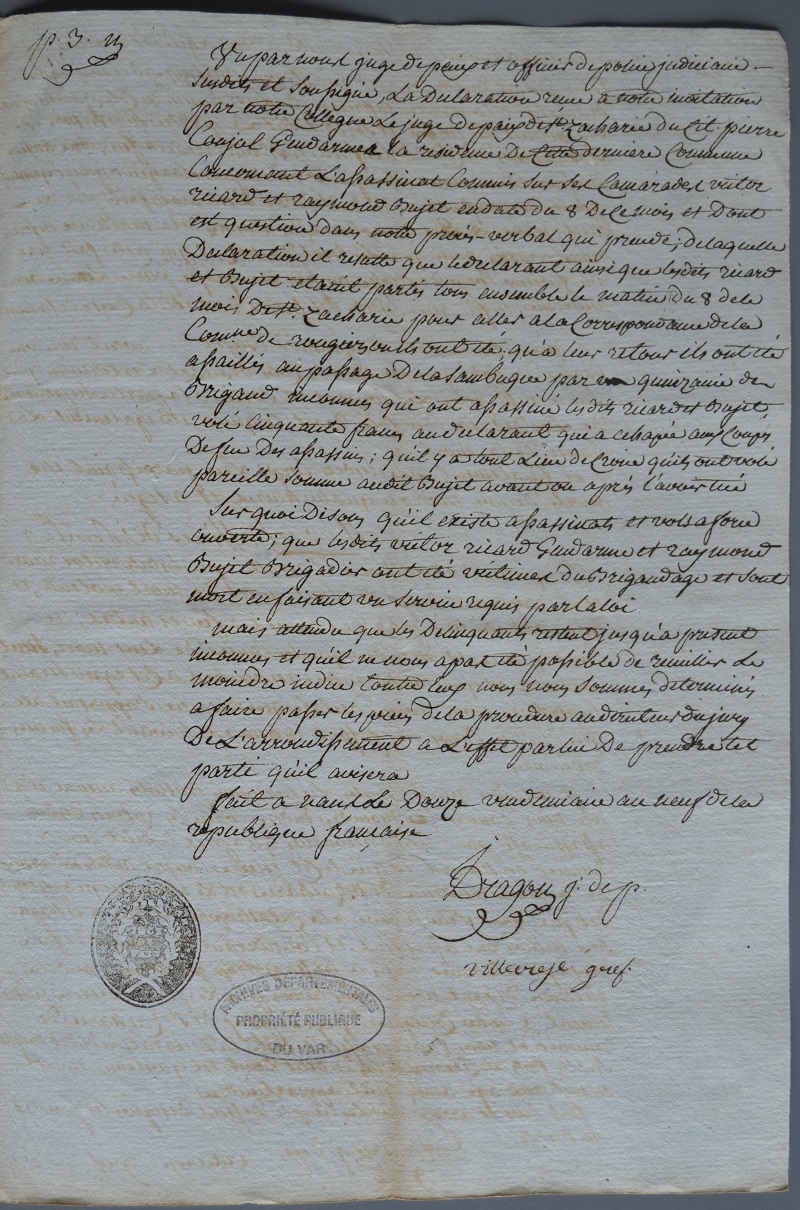 p. 3. n
Vu par nous juge de paix et officier de police judiciaire –
susdits et Soussigné, La Declaration reçue a notre invitation
par notre Collegue Le juge de paix de St. Zacharie du Cit. pierre
Conjol Gendarme a la residence De Cette derniere Commune
Concernant L'assassinat Commis sur ses Camarades victor
ricard et raymond Bujet en date du 8 De ce mois et Dont
est question dans notre procès-verbal qui precede; de laquelle
Declaration il resulte que le declarant ainsi que lesdits ricard
et Bujet étant partis tous ensemble le matin du 8 de ce
mois De St. Zacharie pour aller a la Correspondance de la
Comne. de rougiers ou ils ont été, qu'a leur retour ils ont été
assaillis au passage De la Sambuque par une quinzaine de
Brigand inconnus qui ont assassiné lesdits ricard et Bujet,
volé cinquante francs au declarant qui a echapé aux Coups
De feu Des assassins; qu'il y a tout Lieu de Croire qu'ils ont volé
pareille somme audit Bujet avant ou après l'avoir tué
Sur quoi Disons qu'il existe assassinats et vols a force
ouverte; que lesdits victor ricard Gendarme et raymond
Bujet Brigadier ont été victimes du Brigandage et sont
mort en faisant un Service requis par la loi
mais attendu que les Delinquants restent jusqu'a present
inconnus et qu'il ne nous a pas été possible de recuillir Le
moindre indice Contre eux nous nous sommes determinés
a faire passer les pieces de la procedure au directeur du jury
De L'arrondissement a L'effet par lui De prendre tel
parti qu'il avisera
fait a nans Le Douze vendemiaire an neuf de la
republique française
Dragon j. de p.
gref.
ARCHIVES DÉPARTEMENTALES
PROPRIÉTÉ PUBLIQUE
DU VAR